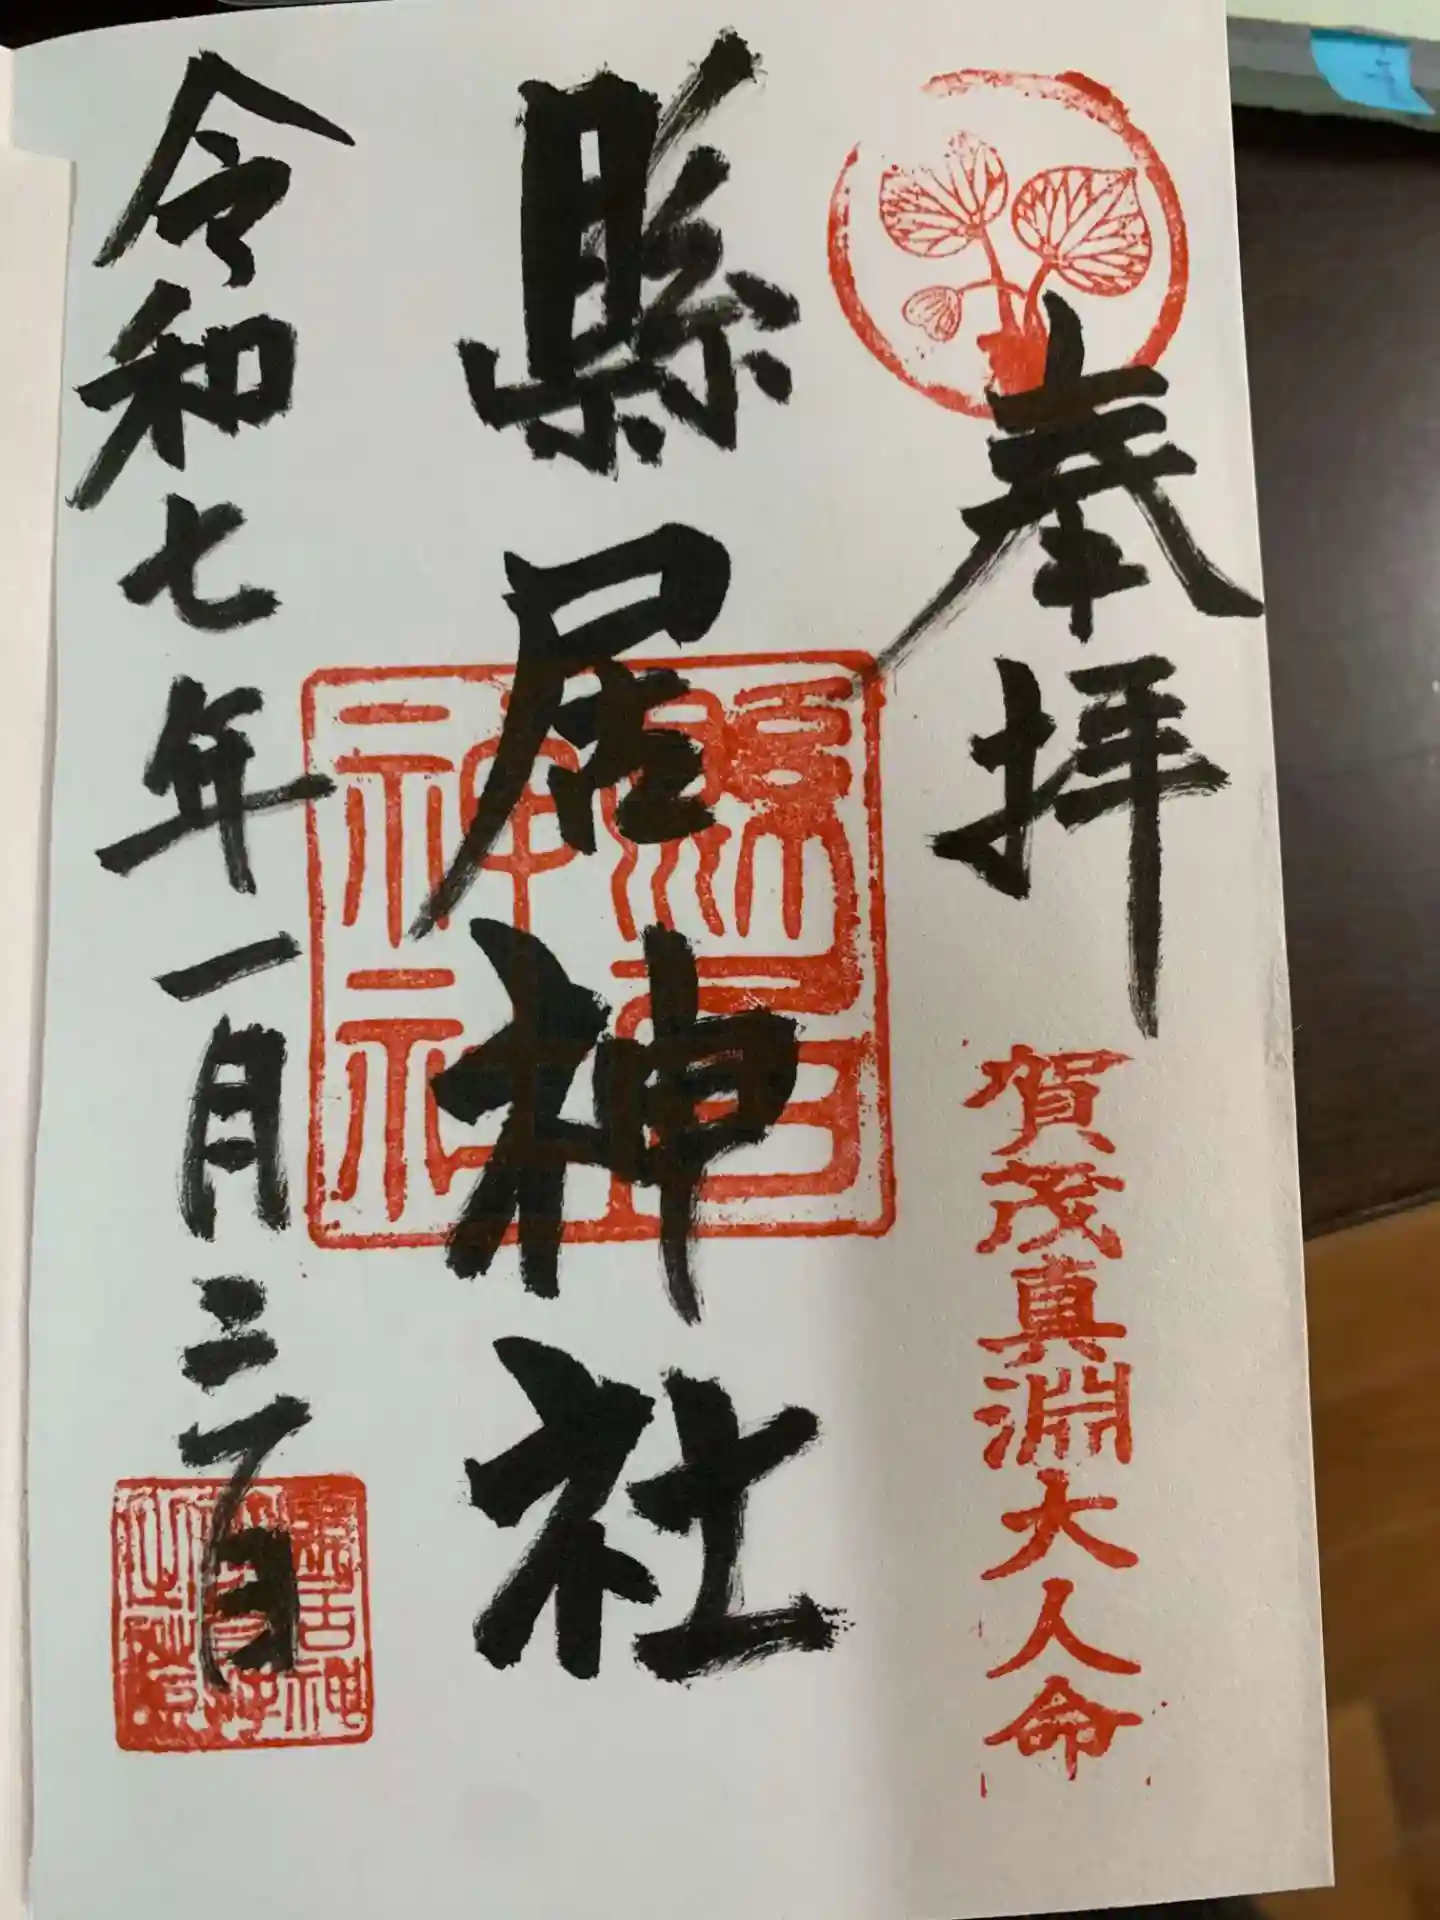 奉拝
賀茂真淵大人命
縣居神社
縣居神社
令和七年一月三日